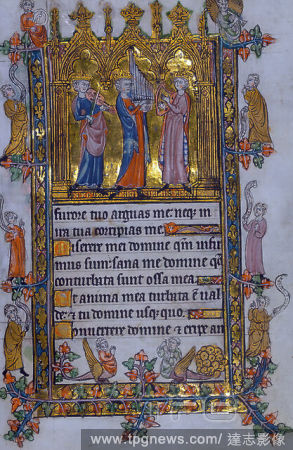 furore tuo arguas me. neq; in
ira tua corripias me.
iserere mei domine qm̄ infir
mus sum: sana me domine qm̄
conturbata sunt ossa mea.
t anima mea turbata ē ual
de: & tu domine usq; quo.
onuertere domine & eripe an
www.tpgnews.com/ 達志影像